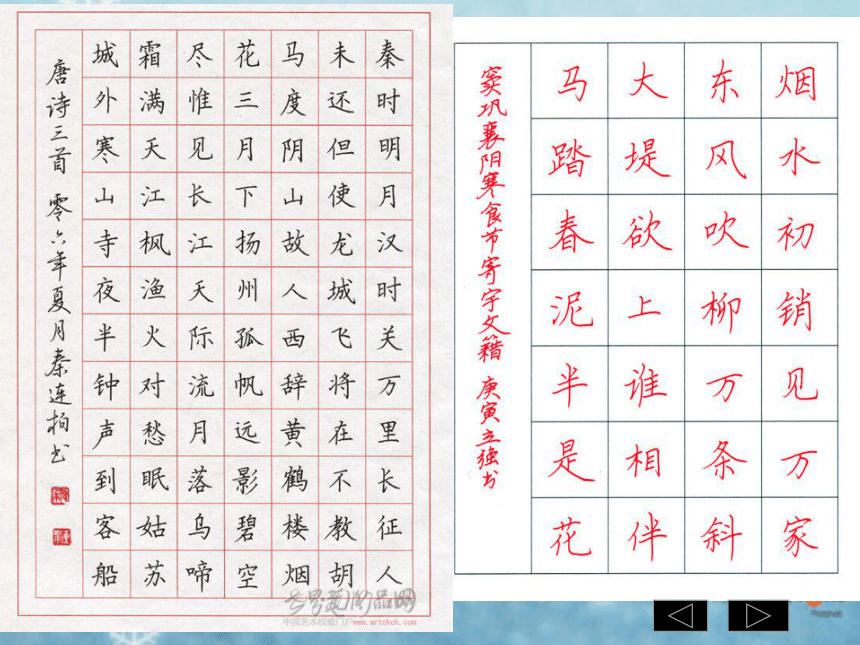 秦时明月汉时关万里长征人
未还但使龙城飞将在不教胡
马度阴山故人西辞黄鹤楼烟
花三月下扬州孤帆远影碧空
尽惟见长江天际流月落乌啼
霜满天江枫渔火对愁眠姑苏
城外寒山寺夜半钟声到客船
唐诗三首 零六年夏月秦连柏书
中国艺术权威门户www.artokok.com
烟水初销见万家
东风吹柳万条斜
大堤欲上谁相伴
马踏春泥半是花
窦巩襄阳寒食节寄宇文籍 庚寅立强书